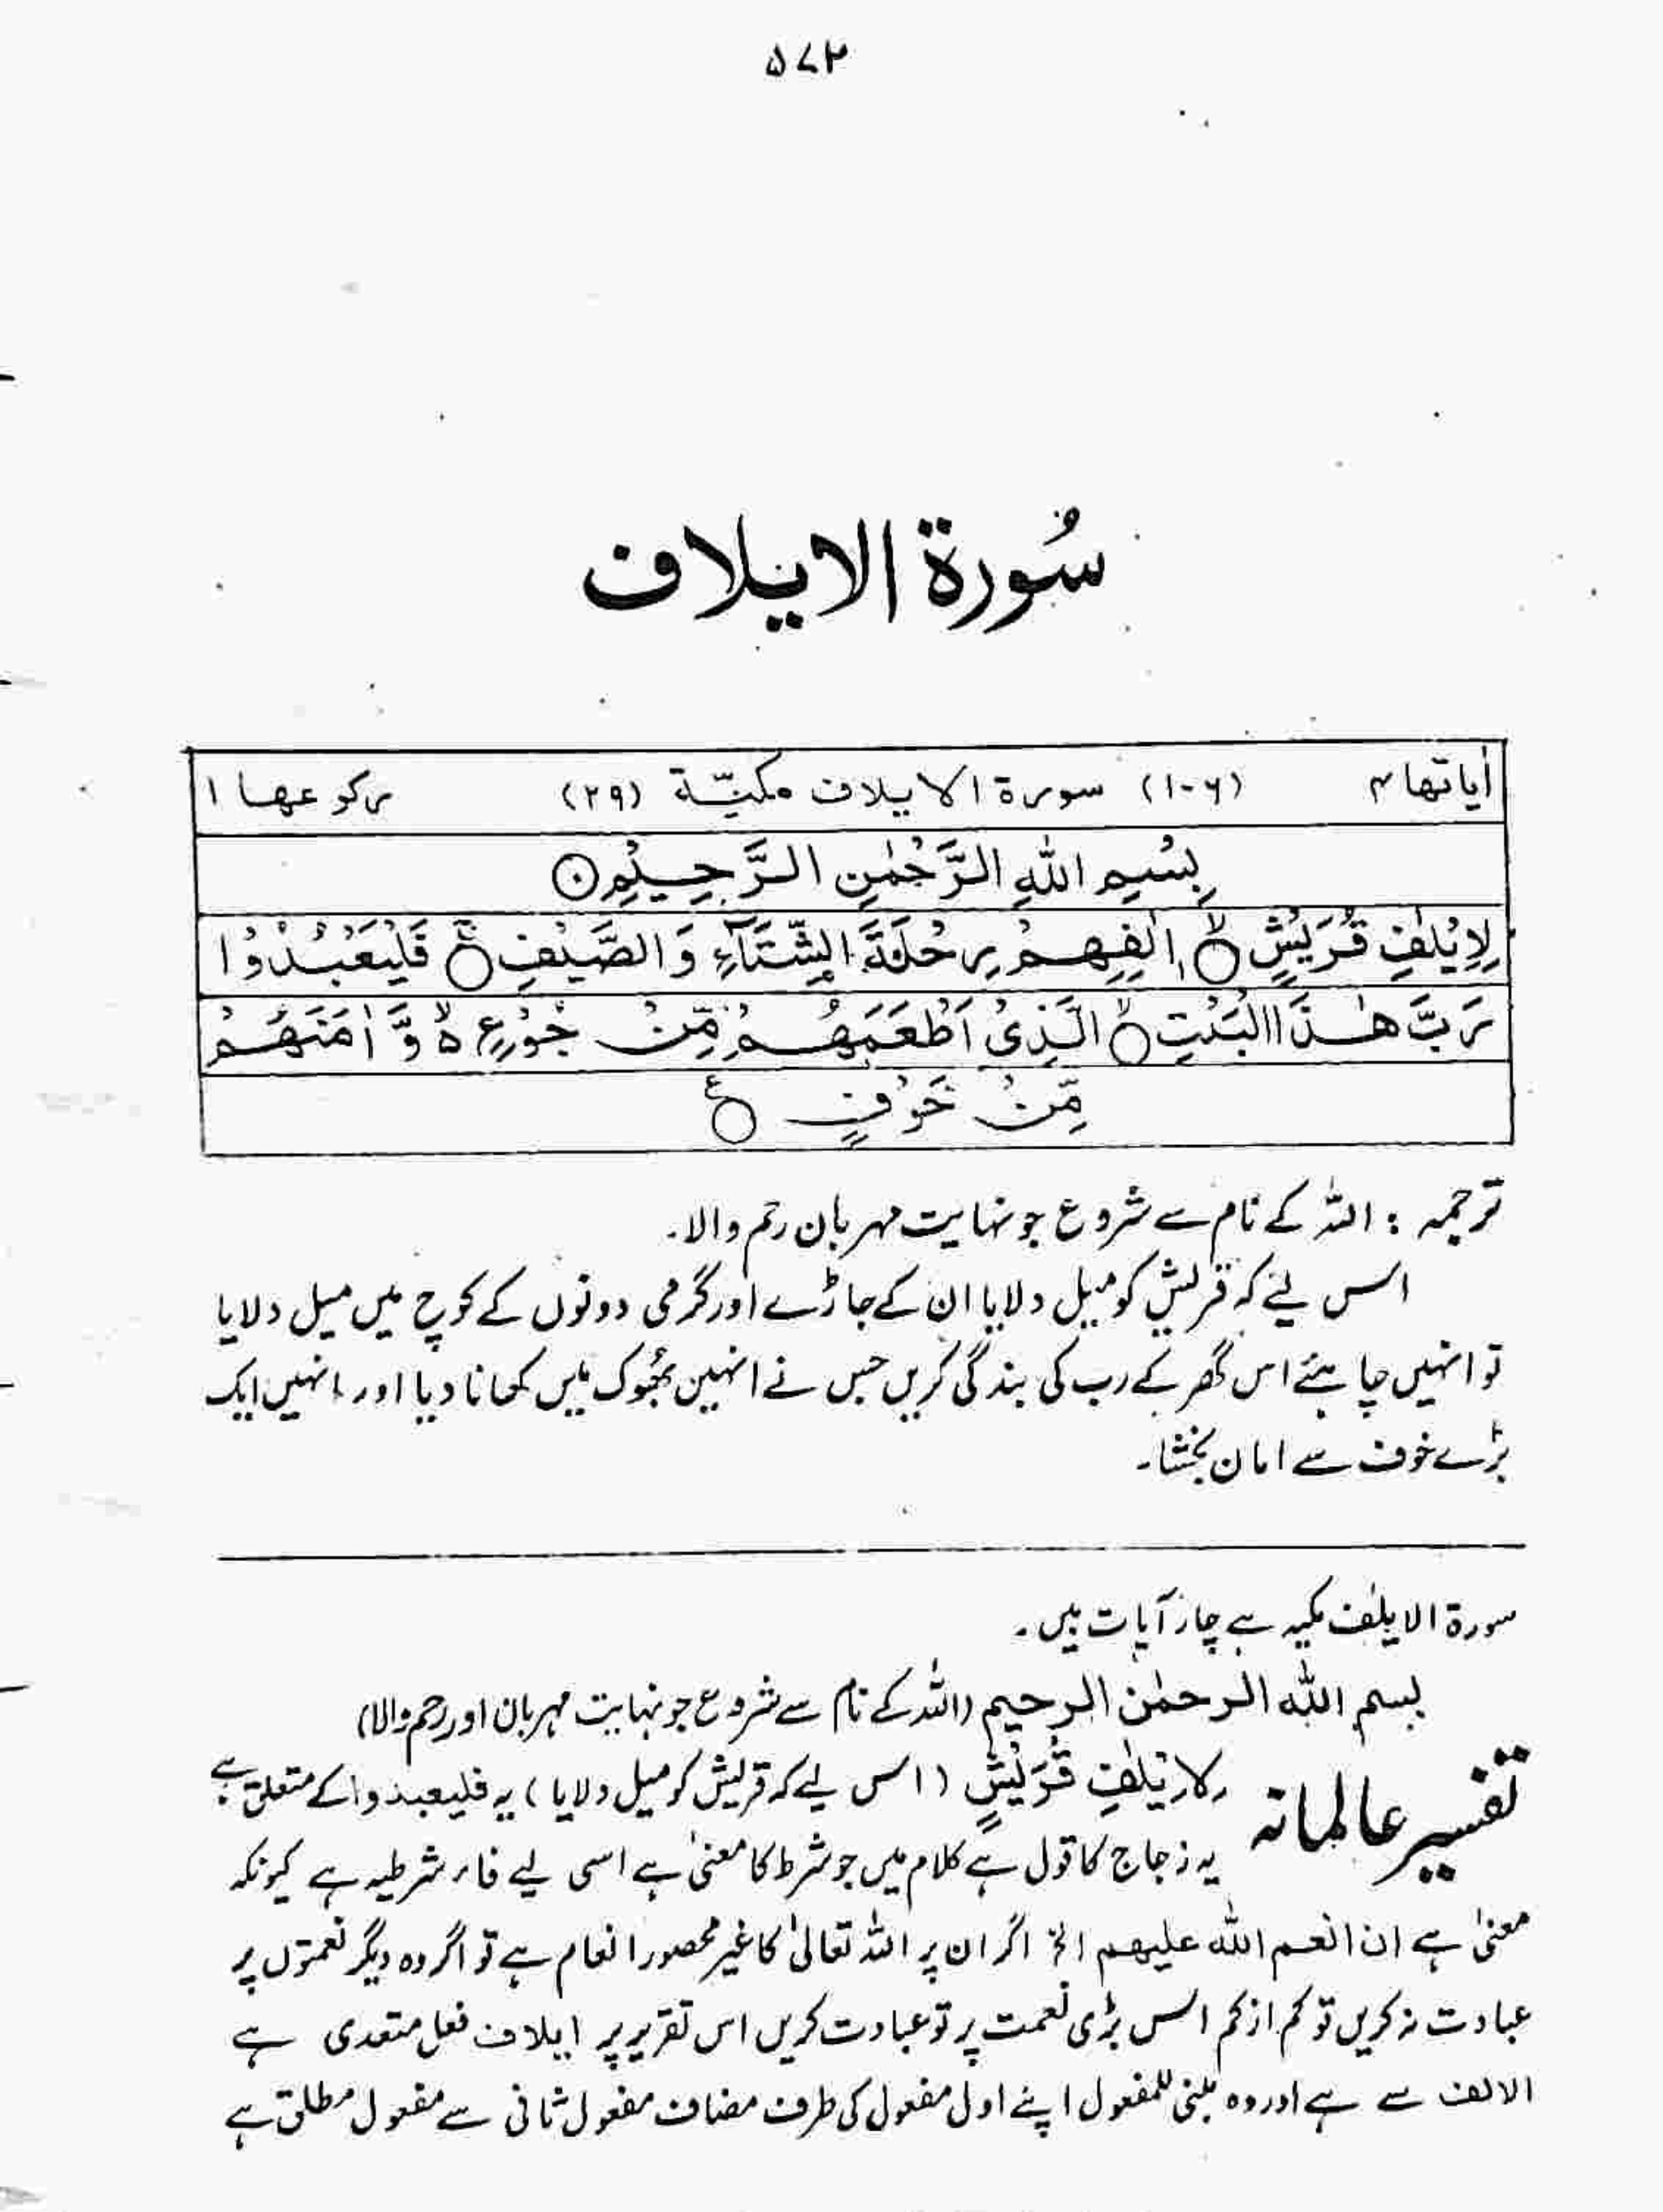 ۵۷۲
سُورة الایلاف
اٰیاتها ۴ (۱۰۶) سورة الایلاف مکیّة (۲۹) رکوعها ۱
بِسْمِ اللهِ الرَّحْمٰنِ الرَّحِیْمِ
لِاِیْلٰفِ قُرَیْشٍ ۙ اٖلٰفِهِمْ رِحْلَةَ الشِّتَآءِ وَالصَّیْفِ ۚ فَلْیَعْبُدُوْا
رَبَّ هٰذَا الْبَیْتِ ۙ الَّذِیْ اَطْعَمَهُمْ مِّنْ جُوْعٍ ۙ وَّ اٰمَنَهُمْ
مِّنْ خَوْفٍ ۠ ع
ترجمہ : اللہ کے نام سے شروع جو نہایت مہربان رحم والا۔
اس لئے کہ قریش کو میل دلایا ان کے جاڑے اور گرمی دونوں کے کوچ میں میل دلایا
تو انہیں چاہئے اس گھر کے رب کی بندگی کریں جس نے انہیں بھُوک میں کھانا دیا اور انہیں ایک
بڑے خوف سے امان بخشا۔
سورة الایلٰف مکیہ ہے چار آیات ہیں۔
بسم اللہ الرحمٰن الرحیم (اللہ کے نام سے شروع جو نہایت مہربان اور رحم والا)
تفسیر عالمانہ
لِاِیْلٰفِ قُرَیْشٍ (اس لیے کہ قریش کو میل دلایا) یہ فلیعبدوا کے متعلق ہے
یہ زجاج کا قول ہے کلام میں جو شرط کا معنیٰ ہے اسی لیے فاء شرطیہ ہے کیونکہ
معنیٰ ہے ان انعم اللہ علیهم الخ اگر ان پر اللہ تعالیٰ کا غیر محصور انعام ہے تو اگر وہ دیگر نعمتوں پر
عبادت نہ کریں تو کم از کم اس بڑی نعمت پر تو عبادت کریں اس تقریر پر ایلاف فعل متعدی ہے
الالف سے ہے اور وہ مبنی للمفعول اپنے اول مفعول کی طرف مضاف مفعول ثانی سے مفعول مطلق ہے